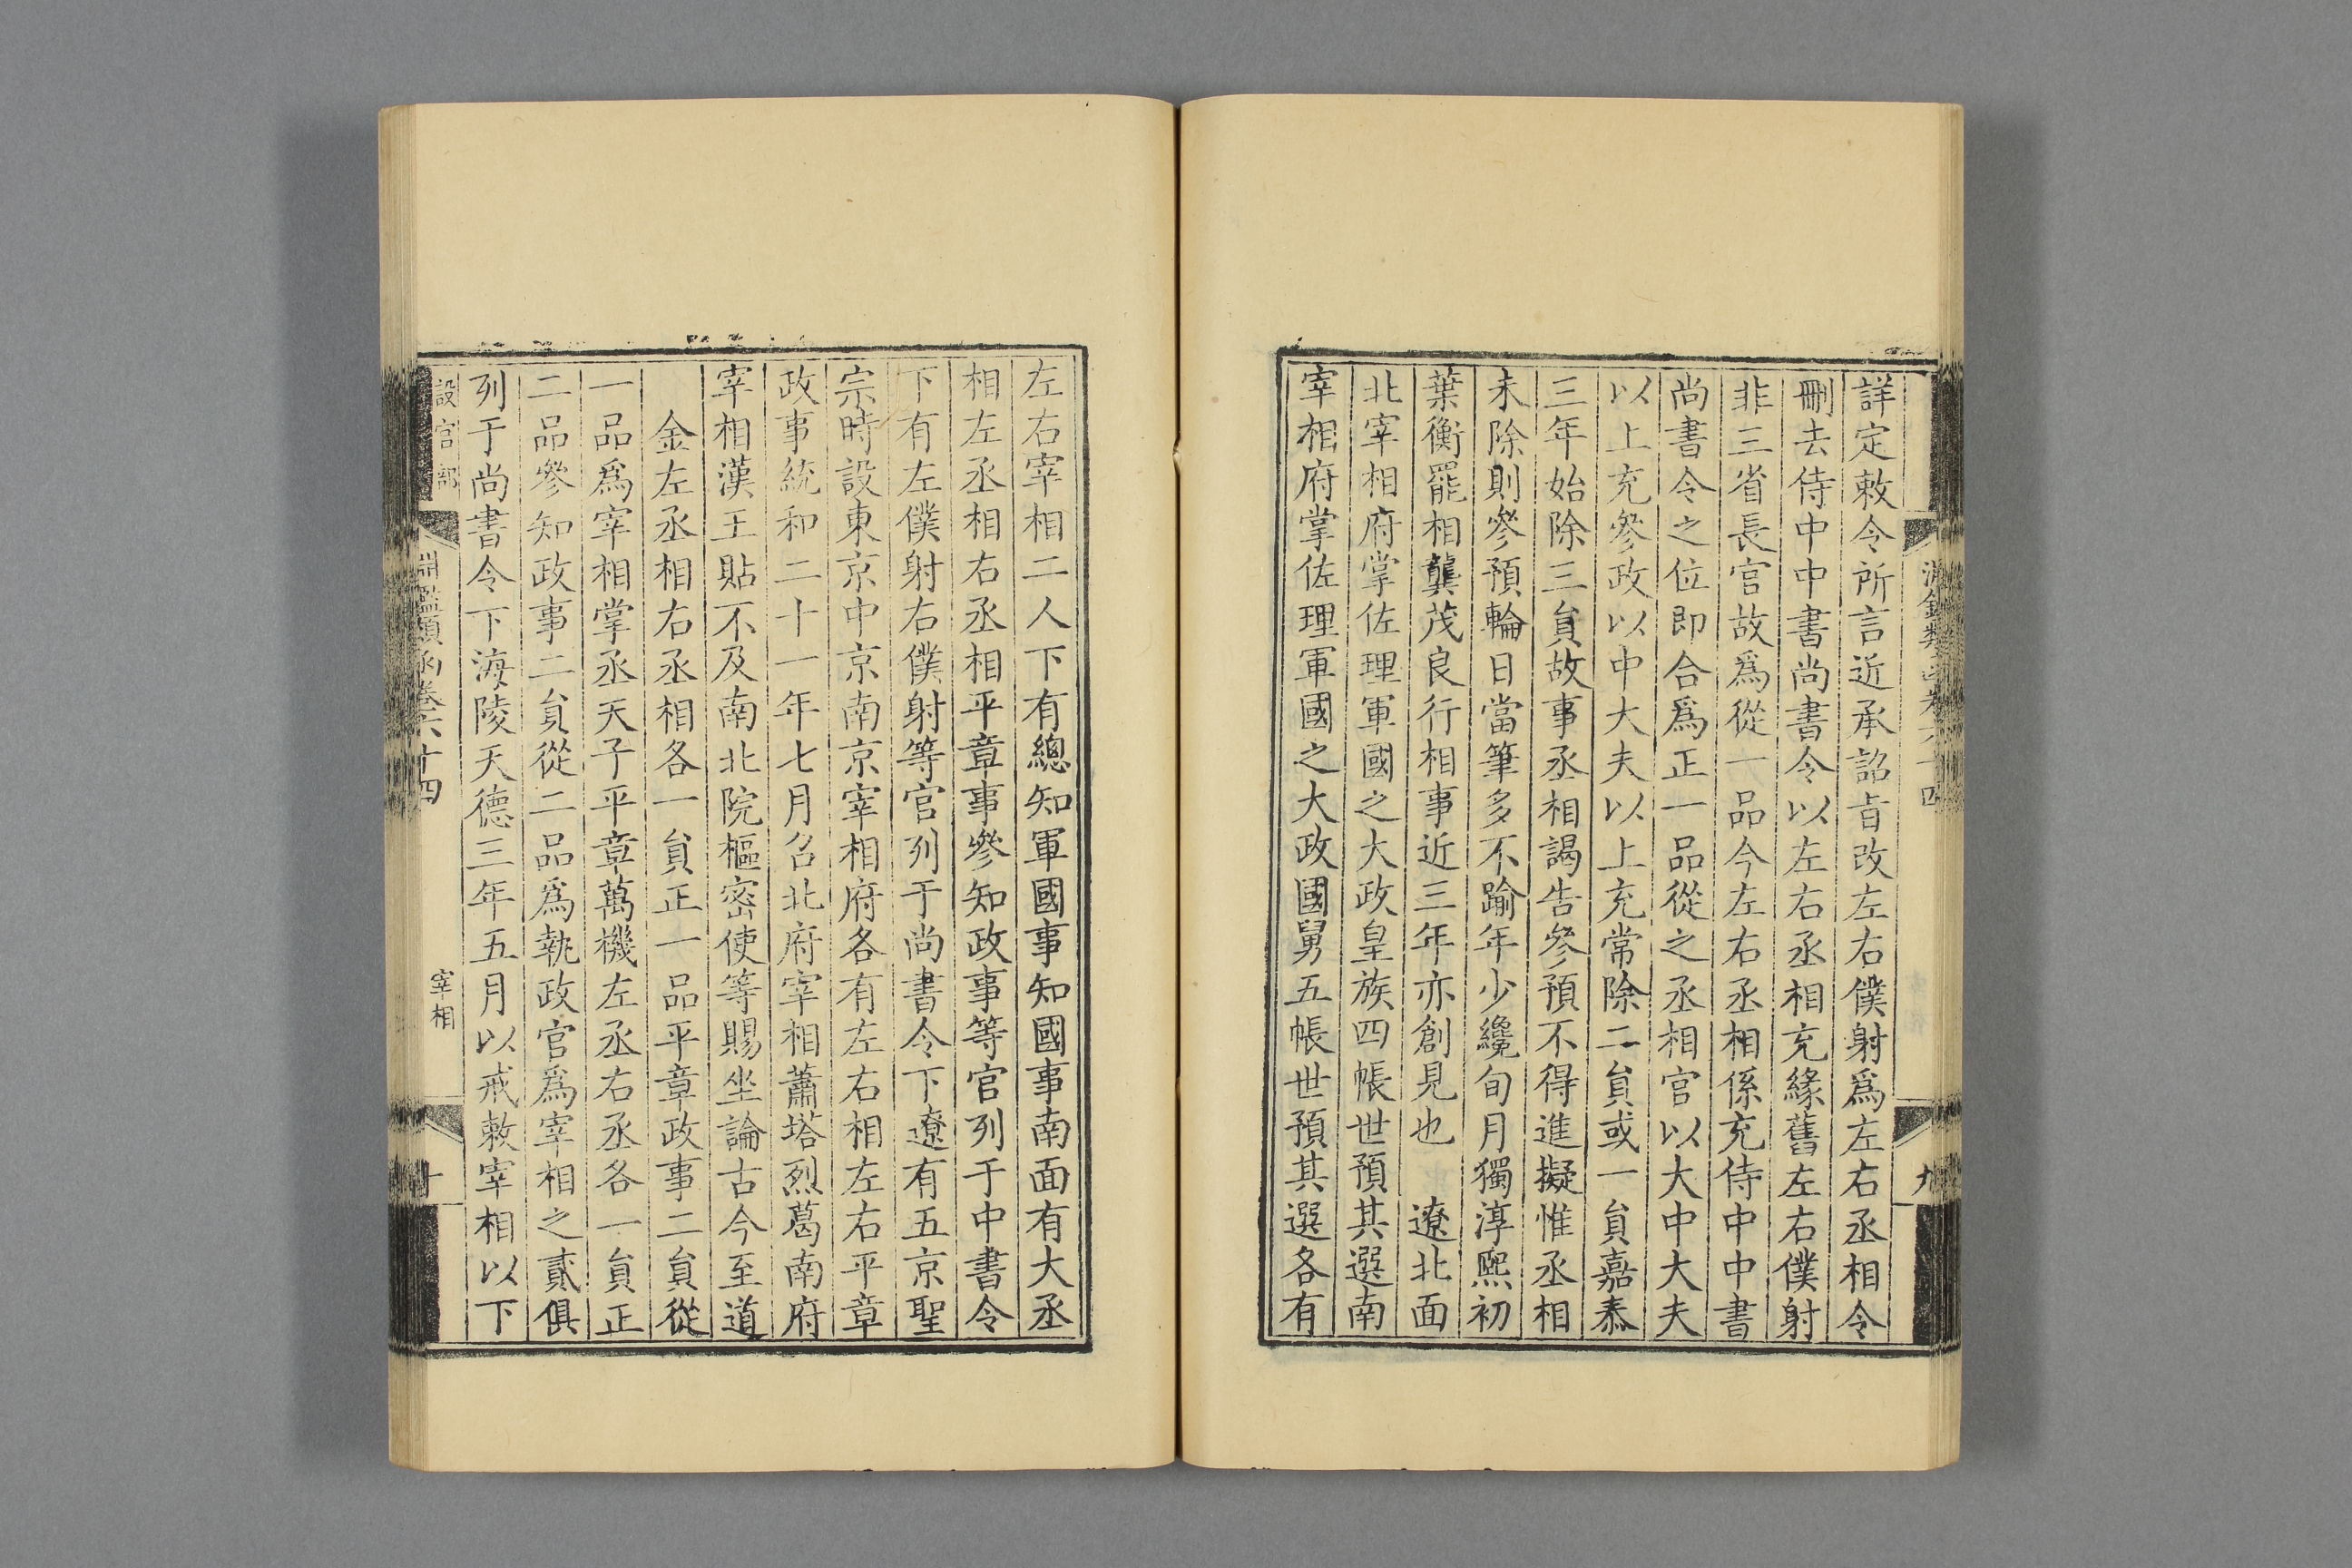 詳定敕令所言近承詔旨改左右僕射爲左右丞相令
刪去侍中中書尚書令以左右丞相充緣舊左右僕射
非三省長官故爲從一品今左右丞相係充侍中中書
尚書令之位即合爲正一品從之丞相官以大中大夫
以上充參政以中大夫以上充常除二員或一員嘉泰
三年始除三員故事丞相謁告參預不得進擬惟丞相
未除則參預輪日當筆多不踰年少纔旬月獨淳熙初
葉衡罷相龔茂良行相事近三年亦創見也 遼北面
北宰相府掌佐理軍國之大政皇族四帳世預其選南
宰相府掌佐理軍國之大政國舅五帳世預其選各有
九
左右宰相二人下有總知軍國事知國事南面有大丞
相左丞相右丞相平章事參知政事等官列于中書令
下有左僕射右僕射等官列于尚書令下遼有五京聖
宗時設東京中京南京宰相府各有左右相左右平章
政事統和二十一年七月召北府宰相蕭塔烈葛南府
宰相漢王貼不及南北院樞密使等賜坐論古今至道
金左丞相右丞相各一員正一品平章政事二員從
一品爲宰相掌丞天子平章萬機左丞右丞各一員正
二品參知政事二員從二品爲執政官爲宰相之貳俱
列于尚書令下海陵天德三年五月以戒敕宰相以下
設官部
淵鑑類函卷六十四
宰相
十